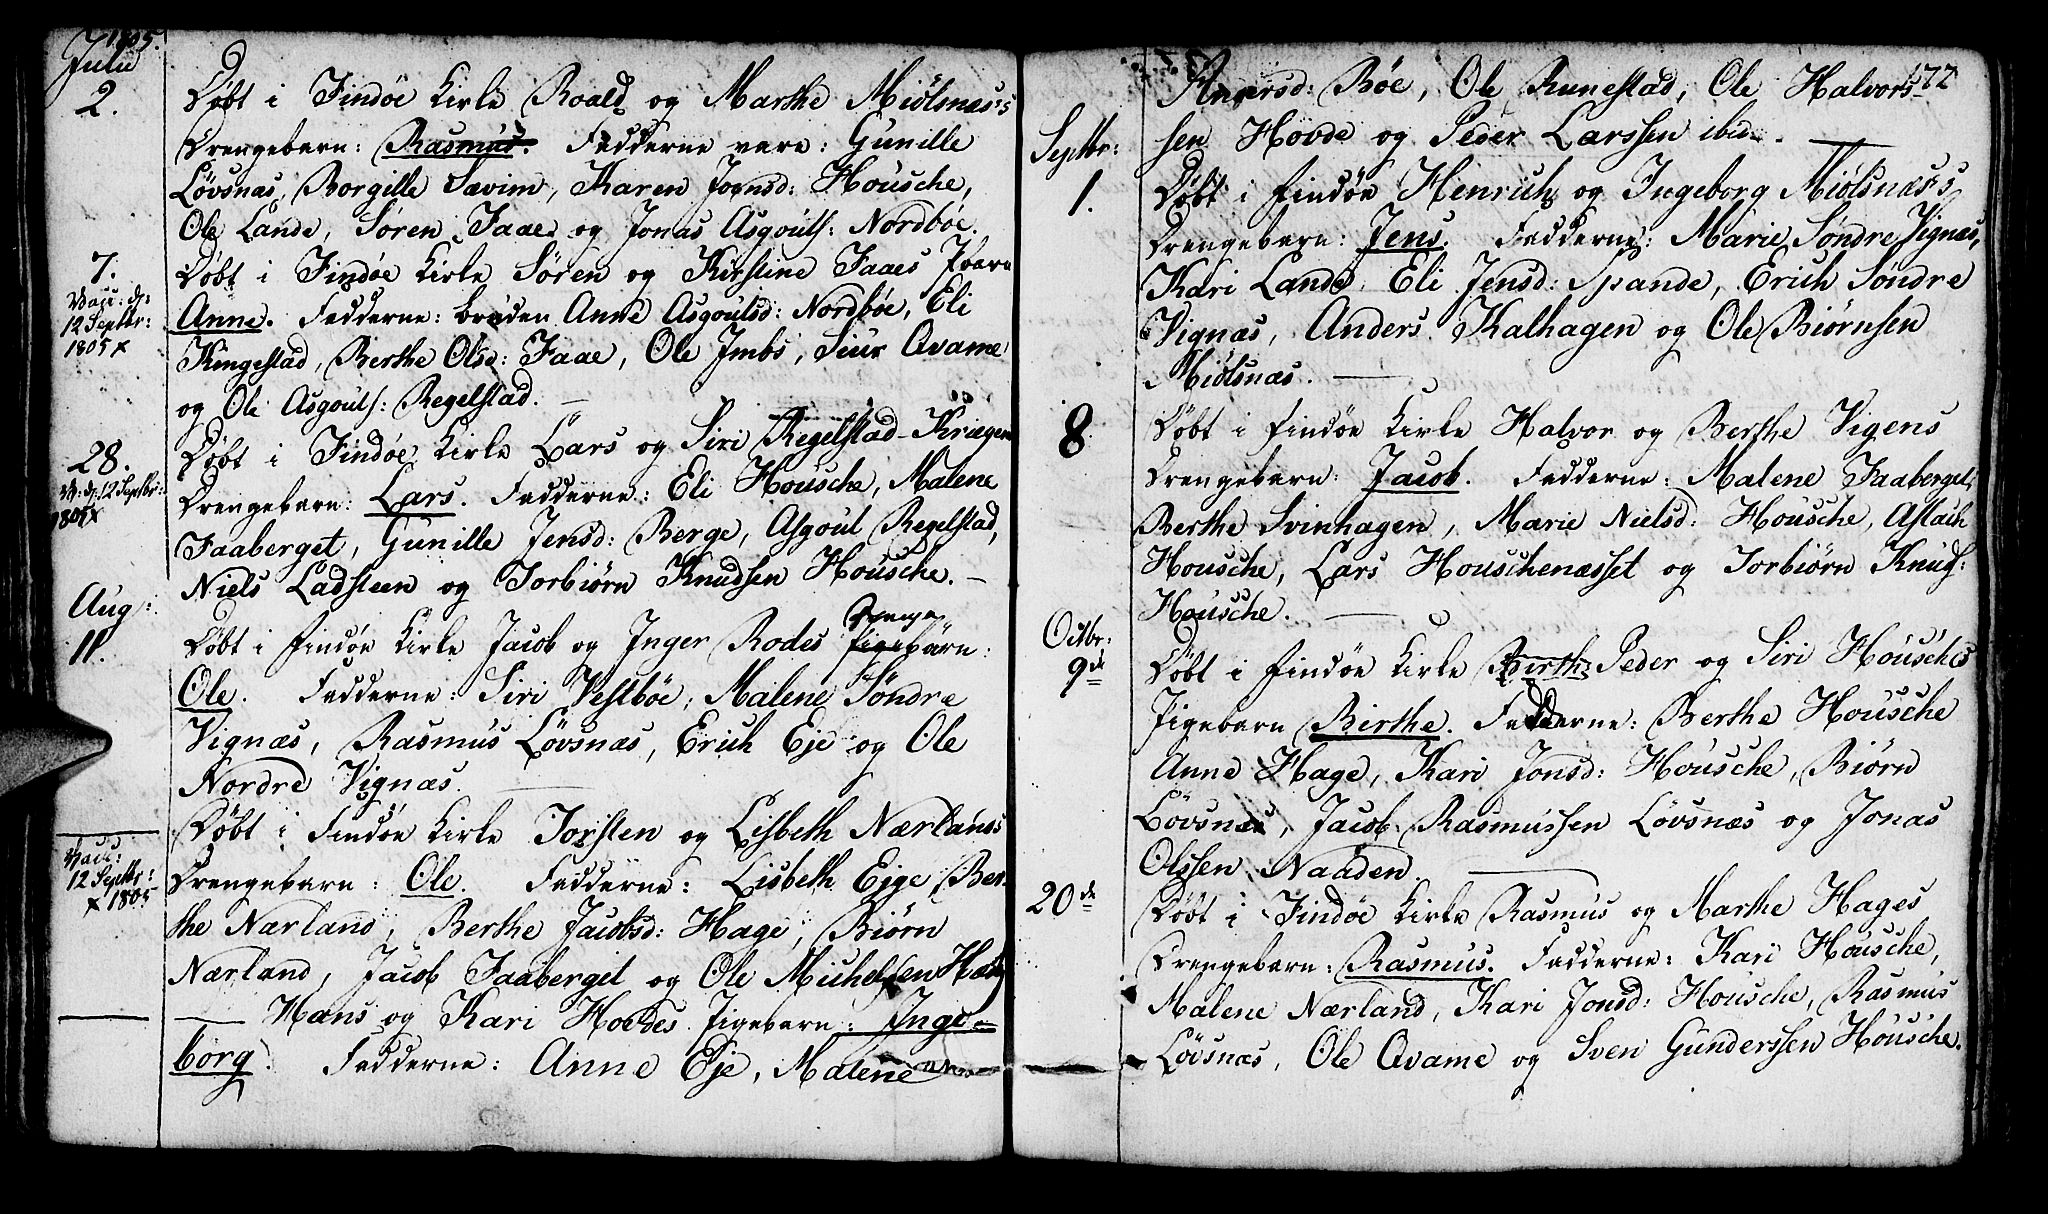 1805.
Julii
2. Döbt i Findöe Kirke Roald og Marthe Miölsnæs's
Drengebarn: Rasmus. Fadderne vare: Gunille
Lövsnæs, Borgille Sævim, Karen Jonsd: Housche,
Ole Lande, Sören Faae og Jonas Asgouls: Nordböe.
7. Döbt i Findöe Kirke Sören og Kirstine Faaes
Vacc: d: 12 Septbr: 1805 x
Anne. Fadderne: bruden Anne Asgoulsd: Nordböe, Eli
Kingestad, Berthe Olsd: Faae, Ole Imbs, Siur Qvame
og Ole Asgouls: Regelstad. —
28. Döbt i Findöe Kirke Lars og Siri Regelstad-Kriegen
V: d: 12 Septbr: 1805 x
Drengebarn: Lars. Fadderne: Eli Housche, Malene
Faaberget, Gunille Jensd: Berge, Asgoul Regelstad,
Niels Ladsteen og Torbiörn Knudsen Housche. —
Aug:
11. Döbt i Findöe Kirke Jacob og Inger Rodes Drenge Pigebarn:
Ole. Fadderne: Siri Vestböe, Malene Söndre
Vignæs, Rasmus Lövsnæs, Erich Eje og Ole
Nordre Vignæs. —
Döbt i Findöe Kirke Torsten og Lisbeth Nærlands
Vacc: 12 Septbr: x 1805
Drengebarn: Ole. Fadderne: Lisbeth Ejge, Ber-
the Nærland, Berthe Jacobsd: Hage, Biörn
Nærland, Jacob Faaberget og Ole Michelsen
— Hans og Kari Hovdes Pigebarn: Inge-
borg. Fadderne: Anne Eje, Malene
177
Böe, Ole Runestad, Ole Halvors-
sen Hovde og Peder Larssen ibid. —
Septbr:
1. Döbt i Findöe Henrich og Ingeborg Miölsnæs's
Drengebarn: Jens. Fadderne: Marie Söndre Vignæs,
Kari Lande, Eli Jensd: Spande, Erich Söndre
Vignæs, Anders Kalhagen og Ole Biörnsen
Miölsnæs. —
8. Döbt i Findöe Kirke Halvor og Berthe Vigens
Drengebarn: Jacob. Fadderne: Malene Faaberget,
Berthe Svinhagen, Marie Nielsd: Housche, Aslach
Housche, Lars Houschenæsset og Torbiörn Knuds:
Housche. —
Octbr:
9de Döbt i Findöe Kirke Birthe Peder og Siri Housches
Pigebarn Birthe. Fadderne: Berthe Housche
Anne Hage, Kari Jonsd: Housche, Biörn
Lövsnæs, Jacob Rasmussen Lövsnæs og Jonas
Olssen Naaden. —
20de Döbt i Findöe Kirke Rasmus og Marthe Hages
Drengebarn: Rasmus. Fadderne: Kari Housche,
Malene Nærland, Kari Jonsd: Housche, Rasmus
Lövsnæs, Ole Qvame og Sven Gunderssen Housche.